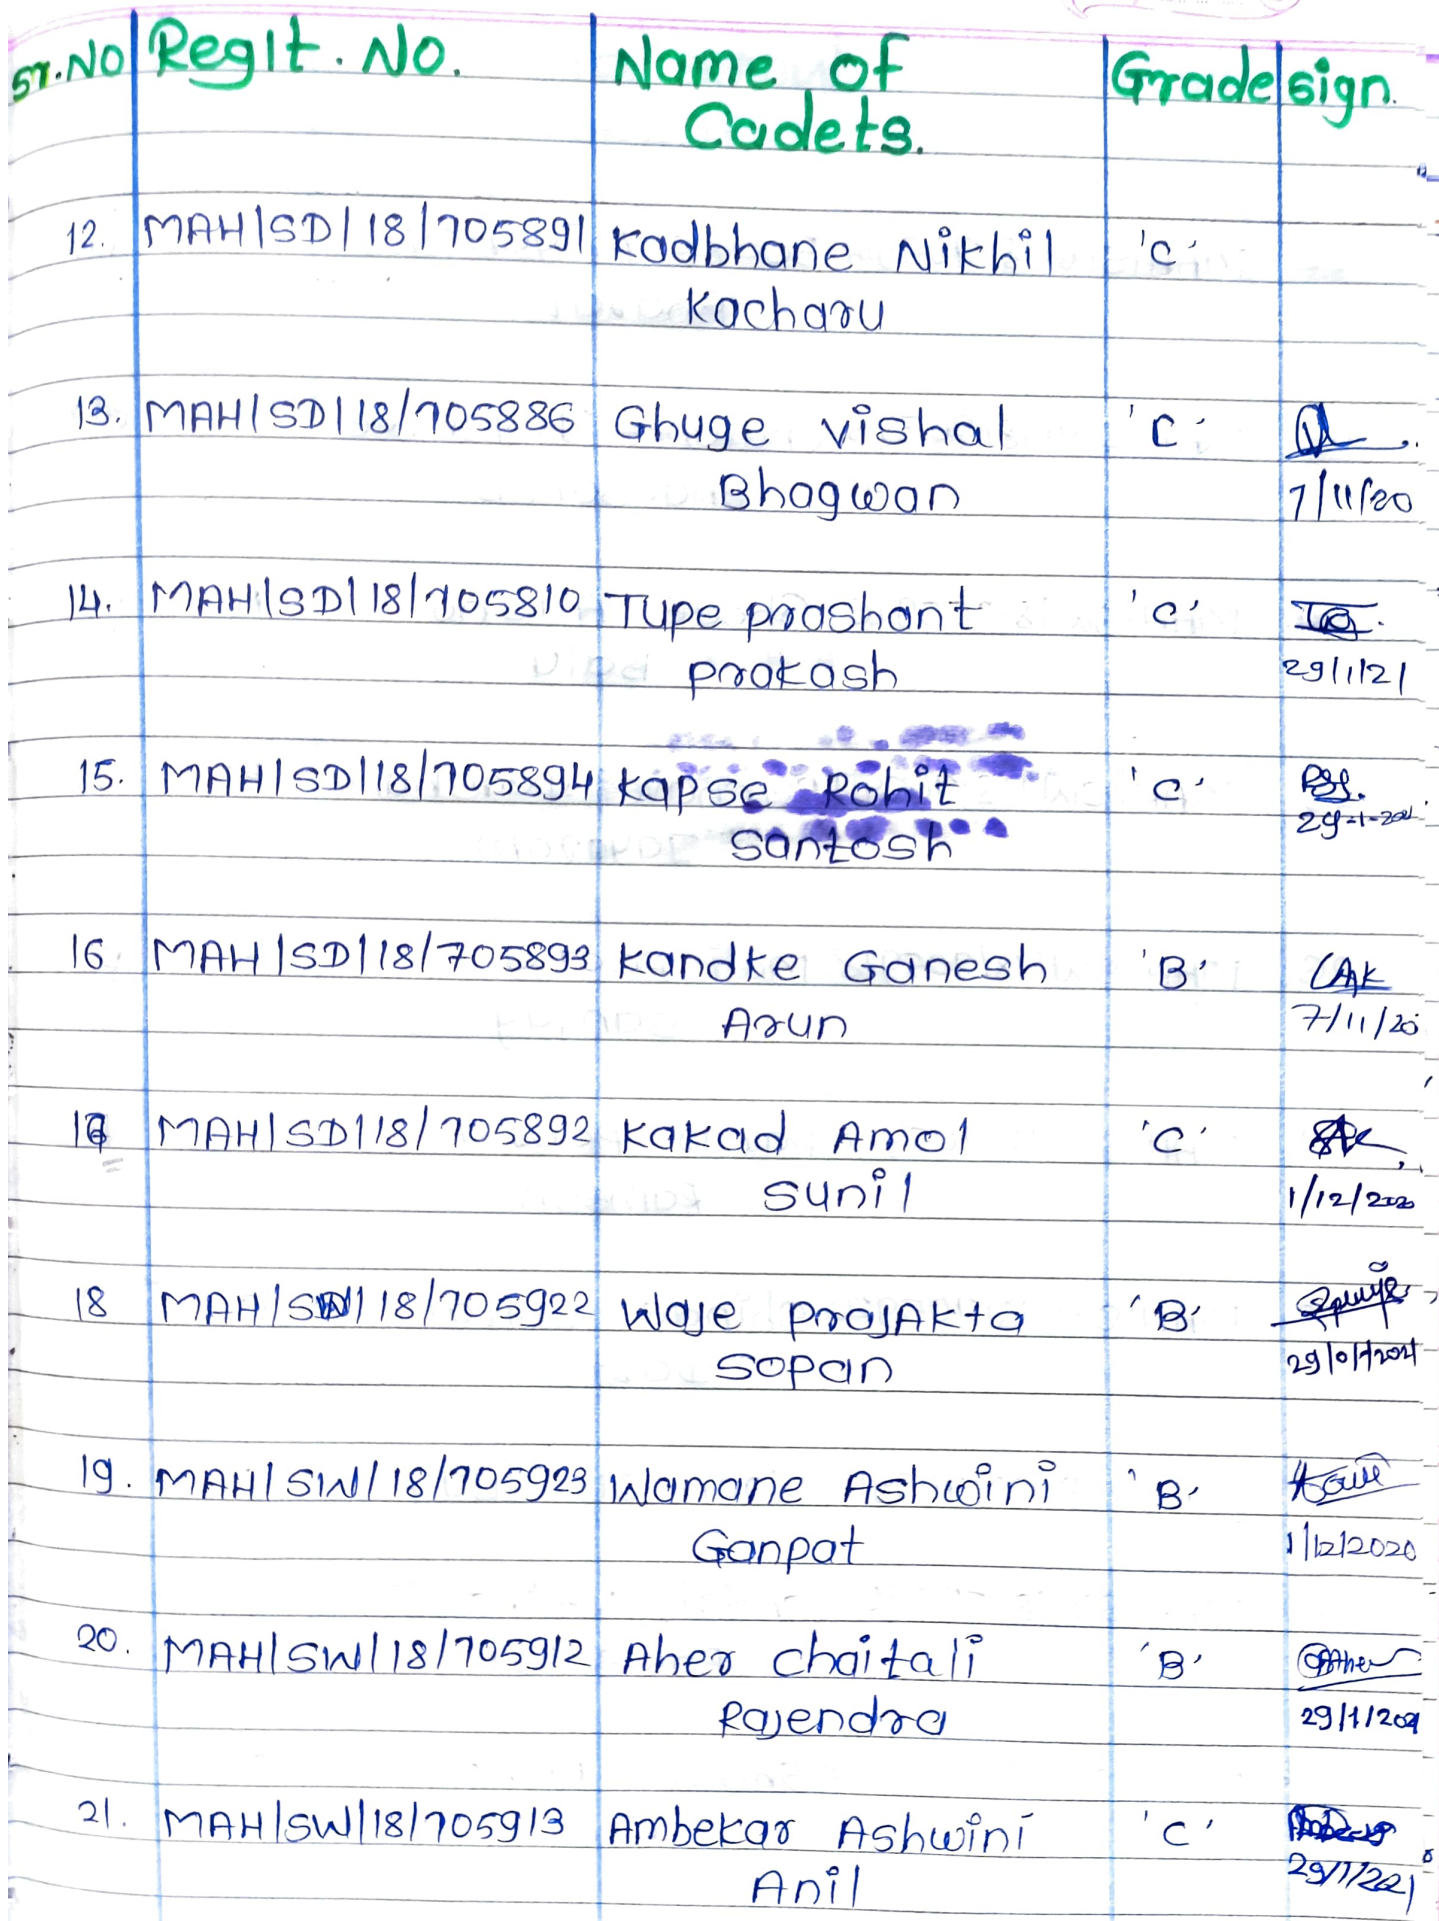 Sr.No Reglt. No. Name of Cadets. Grade sign.
12. MAH|SD|18|705891 Kadbhane Nikhil 'C'
Kacharu
13. MAH|SD|18/705886 Ghuge vishal 'C'
Bhagwan 7/11/20
14. MAH|SD|18/705810 Tupe prashant 'C'
prakash 29/1/21
15. MAH|SD|18/705894 Kapse Rohit 'C'
Santosh 29-1-2021
16 MAH|SD|18/705893 Kandke Ganesh 'B'
Arun 7/11/20
17 MAH|SD|18/705892 Kakad Amol 'C'
Sunil 1/12/2020
18 MAH|SW|18/705922 Waje prajAkta 'B'
Sopan 29/01/2021
19. MAH|SW|18/705923 Wamane Ashwini 'B'
Ganpat 1/12/2020
20. MAH|SW|18/705912 Aher chaitali 'B' Aher
Rajendra 29/1/2021
21. MAH|SW|18/705913 Ambekar Ashwini 'C'
Anil 29/1/2021